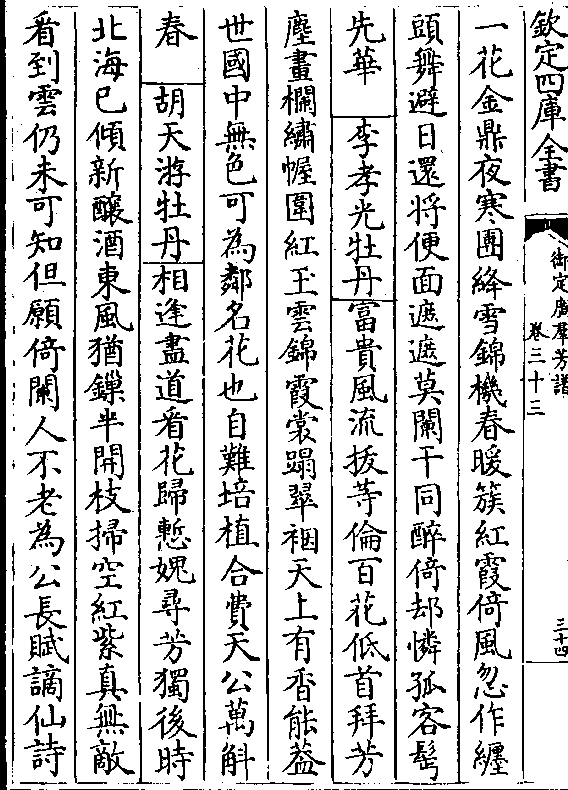 欽定四庫全書
御定廣羣芳譜
卷三十三
三十四
一花金鼎夜寒團絳雪錦機春暖簇紅霞倚風忽作纏
頭舞避日還將便面遮遮莫闌干同醉倚却憐孤客髩
先華 李孝光牡丹 富貴風流拔等倫百花低首拜芳
塵畫欄繡幄圍紅玉雲錦霞裳蹋翠裀天上有香能葢
世國中無色可為鄰名花也自難培植合費天公萬斛
春 胡天游牡丹 相逢盡道看花歸慙媿尋芳獨後時
北海已傾新釀酒東風猶鏁半開枝掃空紅紫真無敵
看到雲仍未可知但願倚闌人不老為公長賦謫仙詩